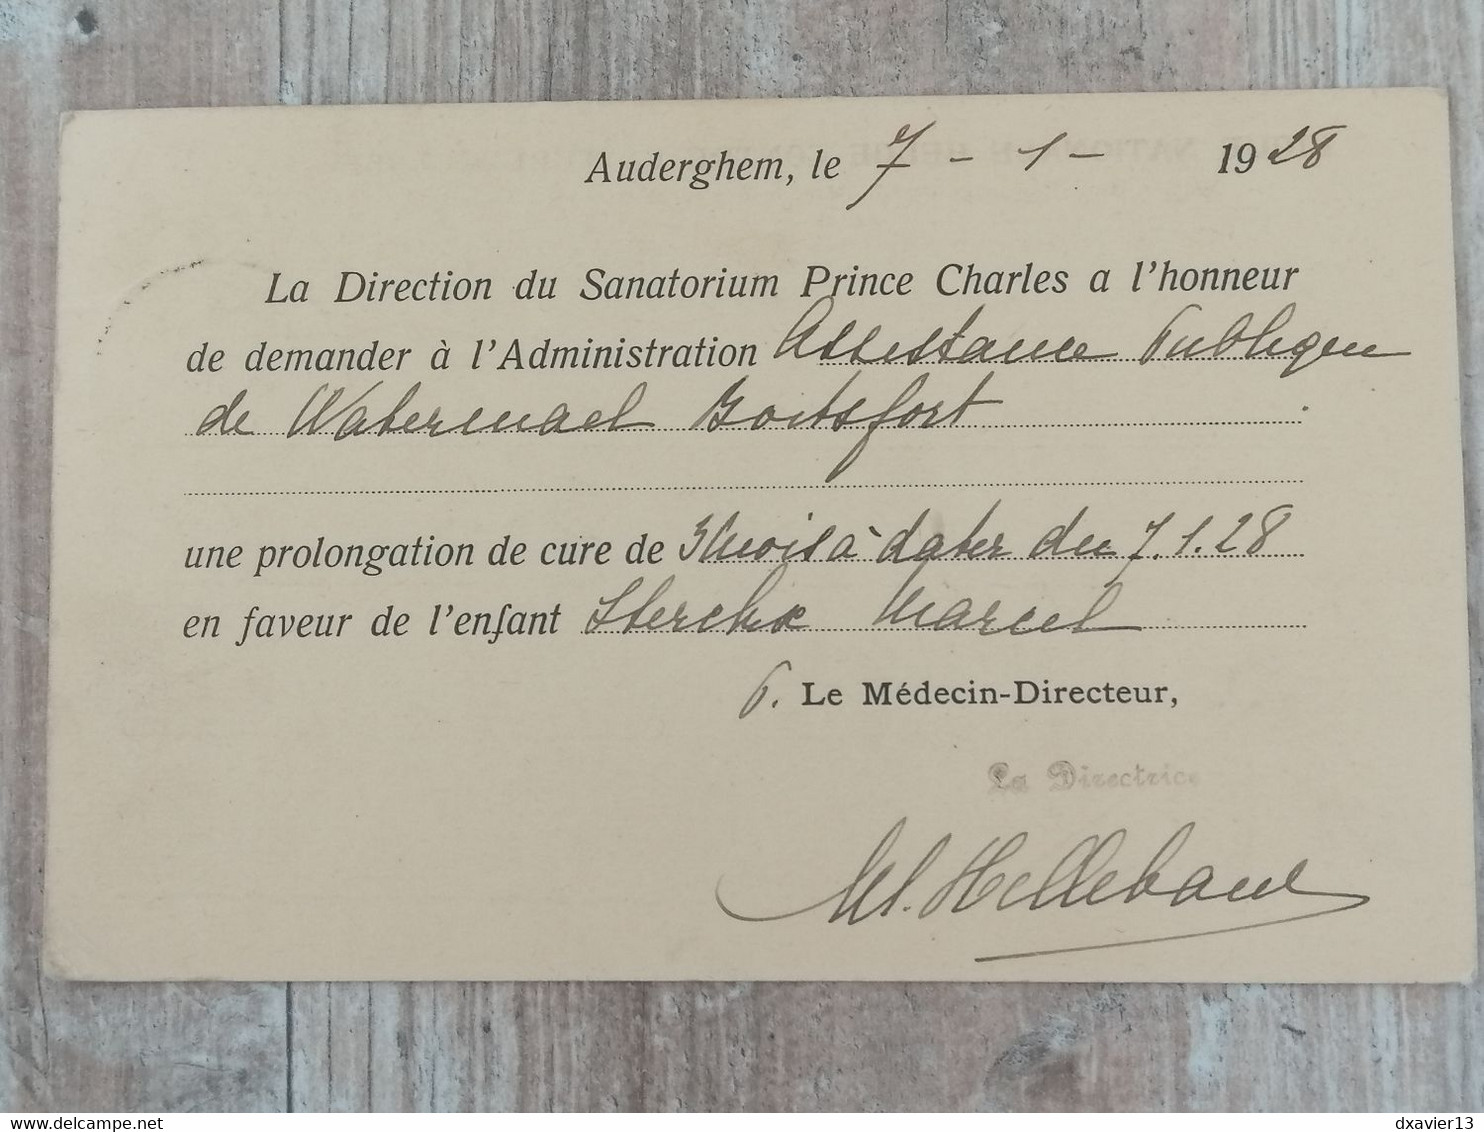 Auderghem, le 7 - 1 - 1928
La Direction du Sanatorium Prince Charles a l'honneur
de demander à l'Administration Assistance Publique
de Watermael Boitsfort
une prolongation de cure de 3 mois à dater du 7.1.28
en faveur de l'enfant Sterckx Marcel
P. Le Médecin-Directeur,
La Directrice
M. Hellebaut
delcampe.net
dxavier13